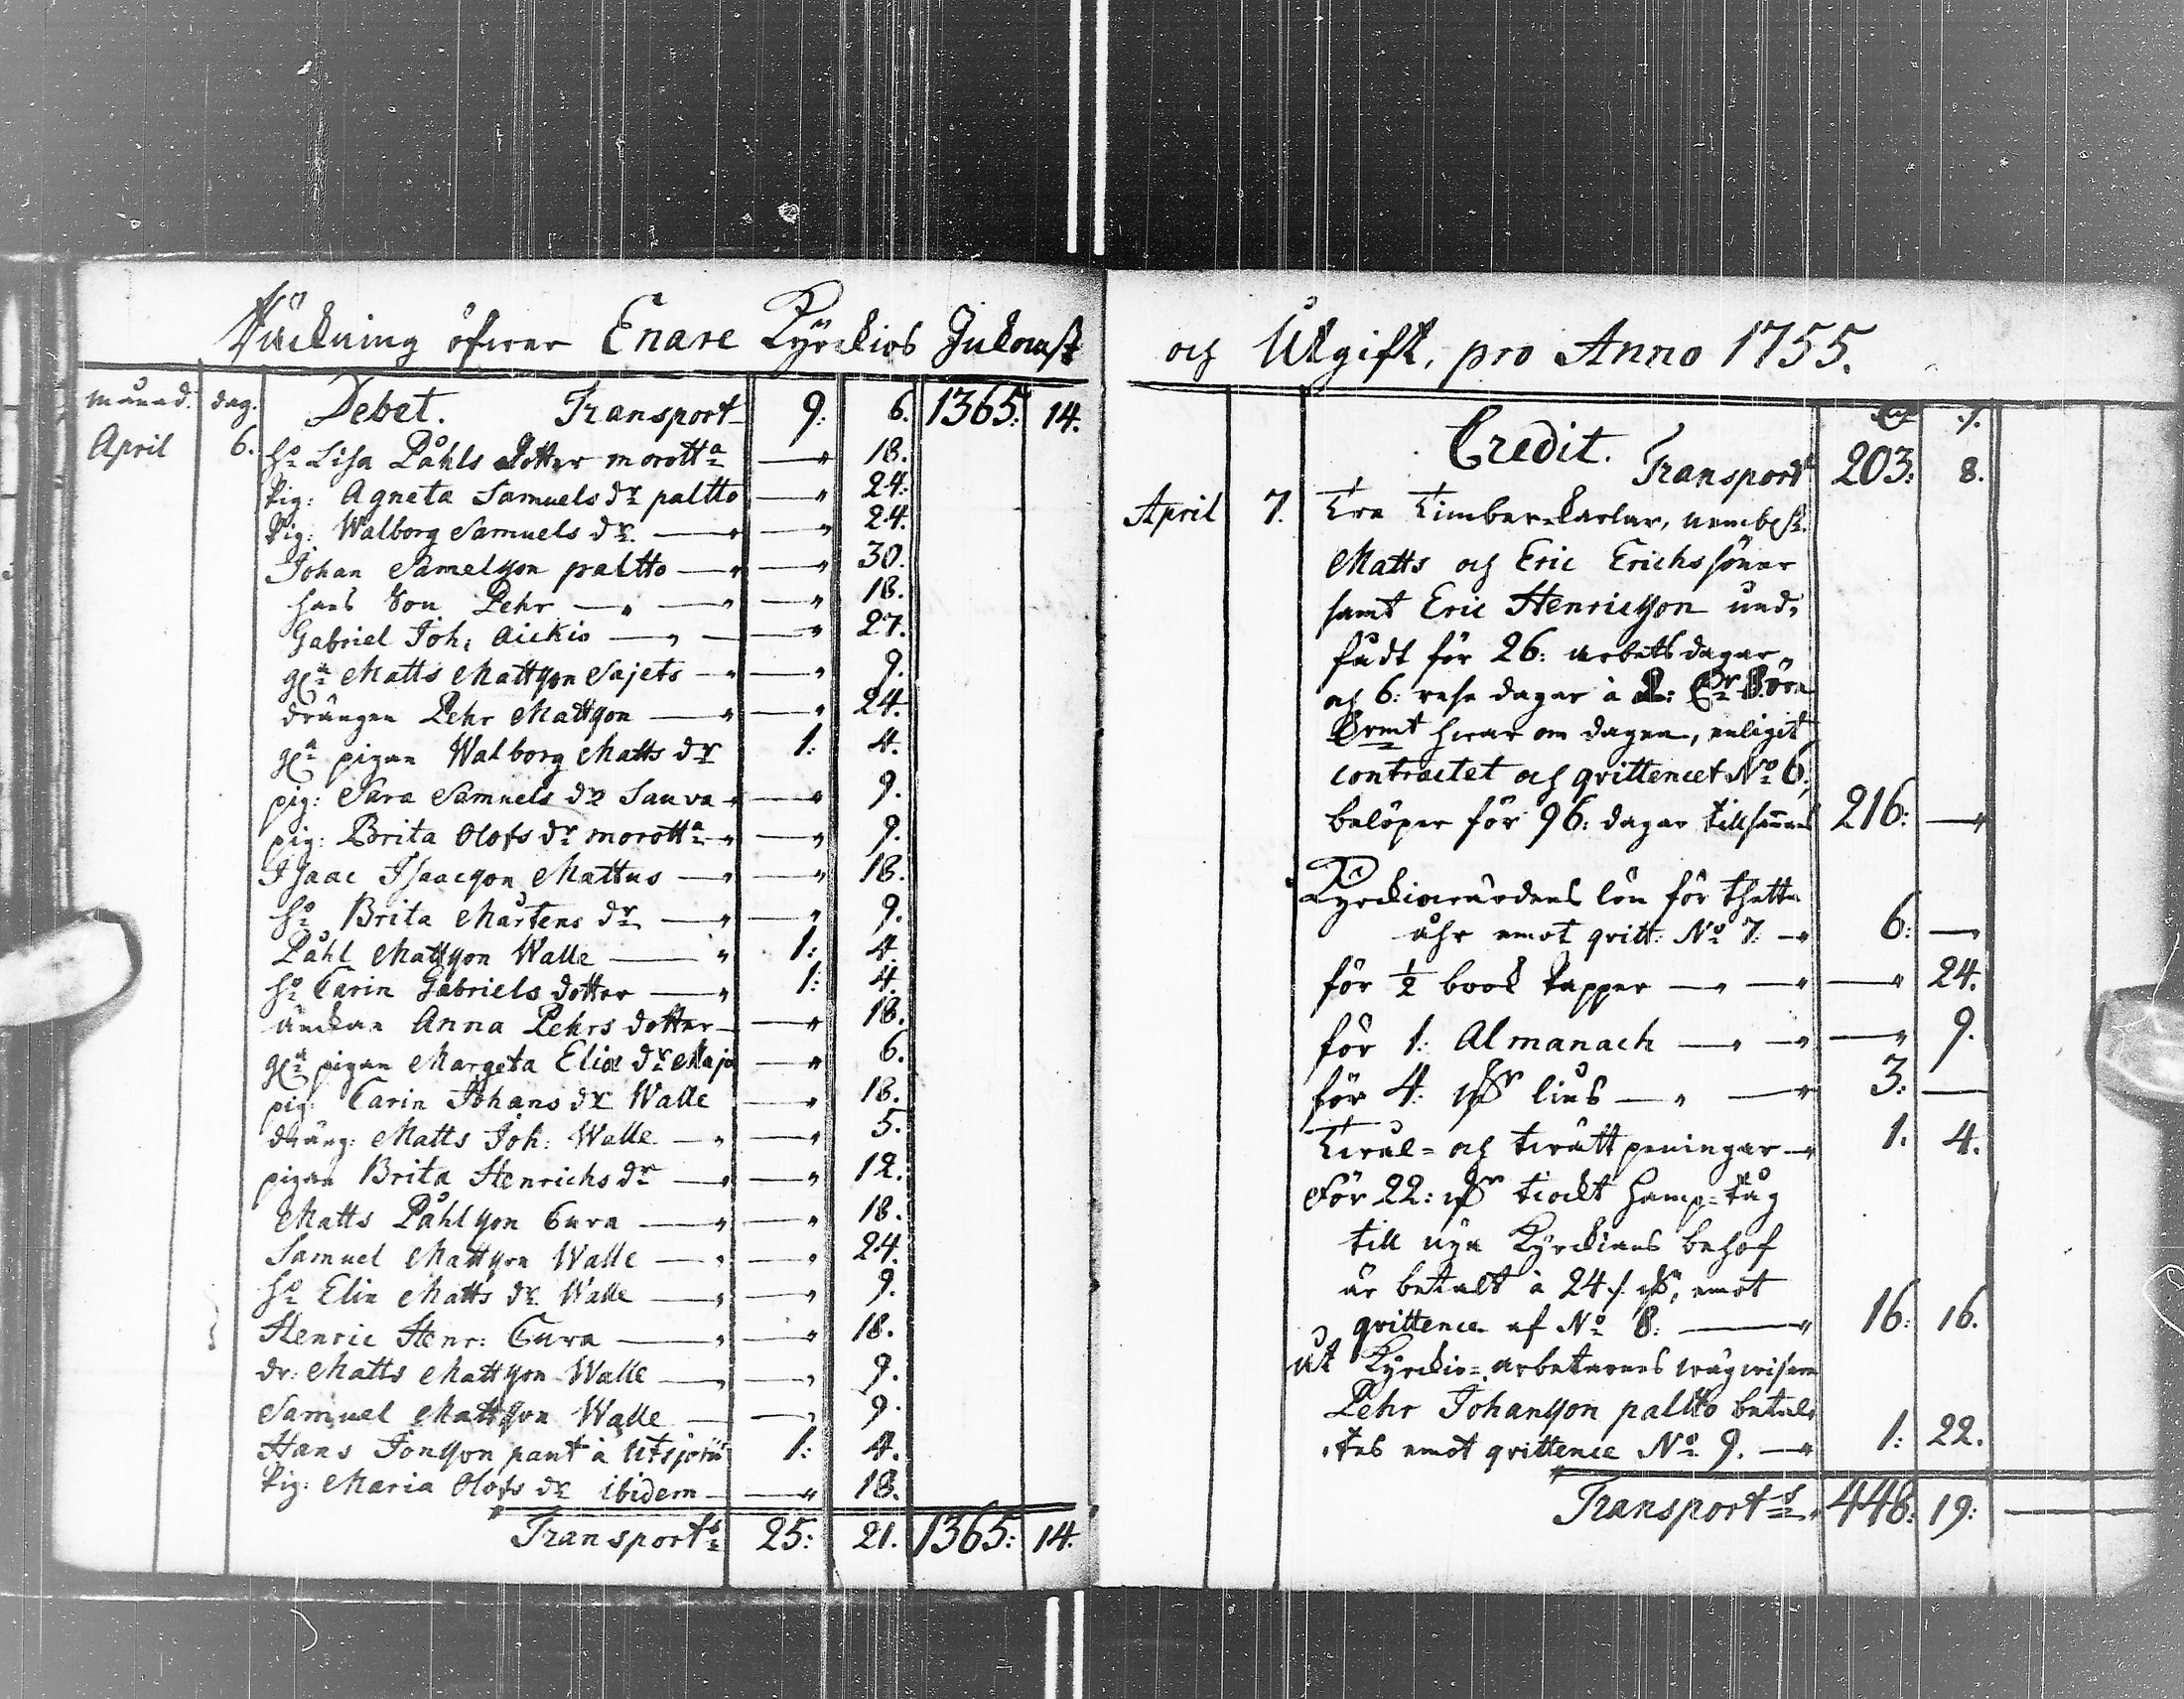 Räckning öfwer Enare Kyrckios Inkomst
månad. dag. Debet. Transport 9: 6. 1365: 14.
April 6. hô Lisa Påhls dotter morottª — 18.
Pig: Agneta Samuels dr paltto — 24.
Pig: Walborg Samuels dr — 24.
Johan Samelsson paltto — 30.
hans Son Pehr — 18.
Gabriel Joh: Aickio — 27.
gª Matts Mattsson Sajets — 9.
drängen Pehr Mattsson — 24.
gª pigan Walborg Matts dr 1: 4.
pig: Sara Samuels dr Sauva — 9.
pig: Brita Olofs dr morottª — 9.
Isaac Isaacsson Mattus — 18.
hô Brita Mårtens dr — 9.
Påhl Mattsson Walle — 1: 4.
hô Carin Gabriels dotter — 1: 4.
änckan Anna Pehrs dotter — 18.
gª pigan Margeta Eliæ dr Majo — 6.
pig: Carin Johans dr Walle — 18.
dräng: Matts Joh: Walle — 5.
pigan Brita Henrichs dr — 12.
Matts Påhlsson Cura — 18.
Samuel Mattsson Walle — 24.
hô Elin Matts dr Walle — 9.
Henric Henr: Cura — 18.
dr: Matts Mattsson Walle — 9.
Samuel Mattsson Walle — 9.
Hans Jonsson pant à Utsjoki 1: 4.
Pig: Maria Olofs dr ibidem — 18.
Transport: 25: 21. 1365: 14.
och Utgift, pro Anno 1755.
Credit.
Transport 203: 8.
April 7. Tre Timberkarlar, nembl:
Matts och Eric Erichssöner
samt Eric Henricsson und-
fådt för 26: arbetsdagar
och 6: rese dagar à 2:
hwar om dagen, enligit
contractet och qvittencet No 6,
belöper för 96: dagar tillsammans 216: —
Kyrckiowärdens lön för thetta
åhr emot qvitt: No 7: — 6: —
för ½ book Papper — — 24.
för 1: Almanach — — 9.
för 4: ℔ lius — 3: —
Tirål- och tirått peningar — 1. 4.
För 22: ℔ tiockt hamp-tåg
till nya Kyrckians behof
är betalt à 24 ℔, emot
qvittence af No 8: — 16: 16.
åt Kyrckio-arbetarnes wägwisare
Pehr Johansson paltto betal-
tes emot qvittence No 9. — 1: 22.
Transport: 446: 19: —